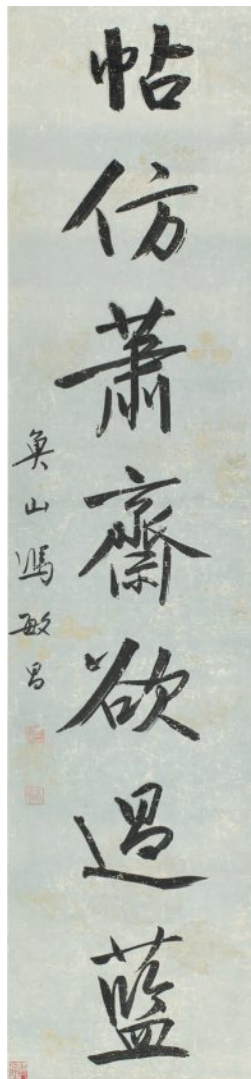 帖仿蕭齋欲過藍
魚山馮敏昌